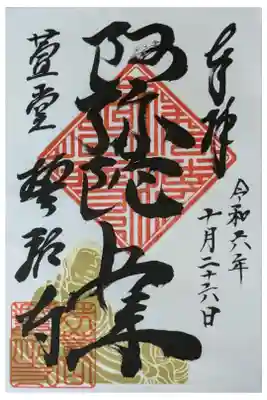 奉拝
令和六年
十月二十六日
阿弥陀如来
萱堂
寺